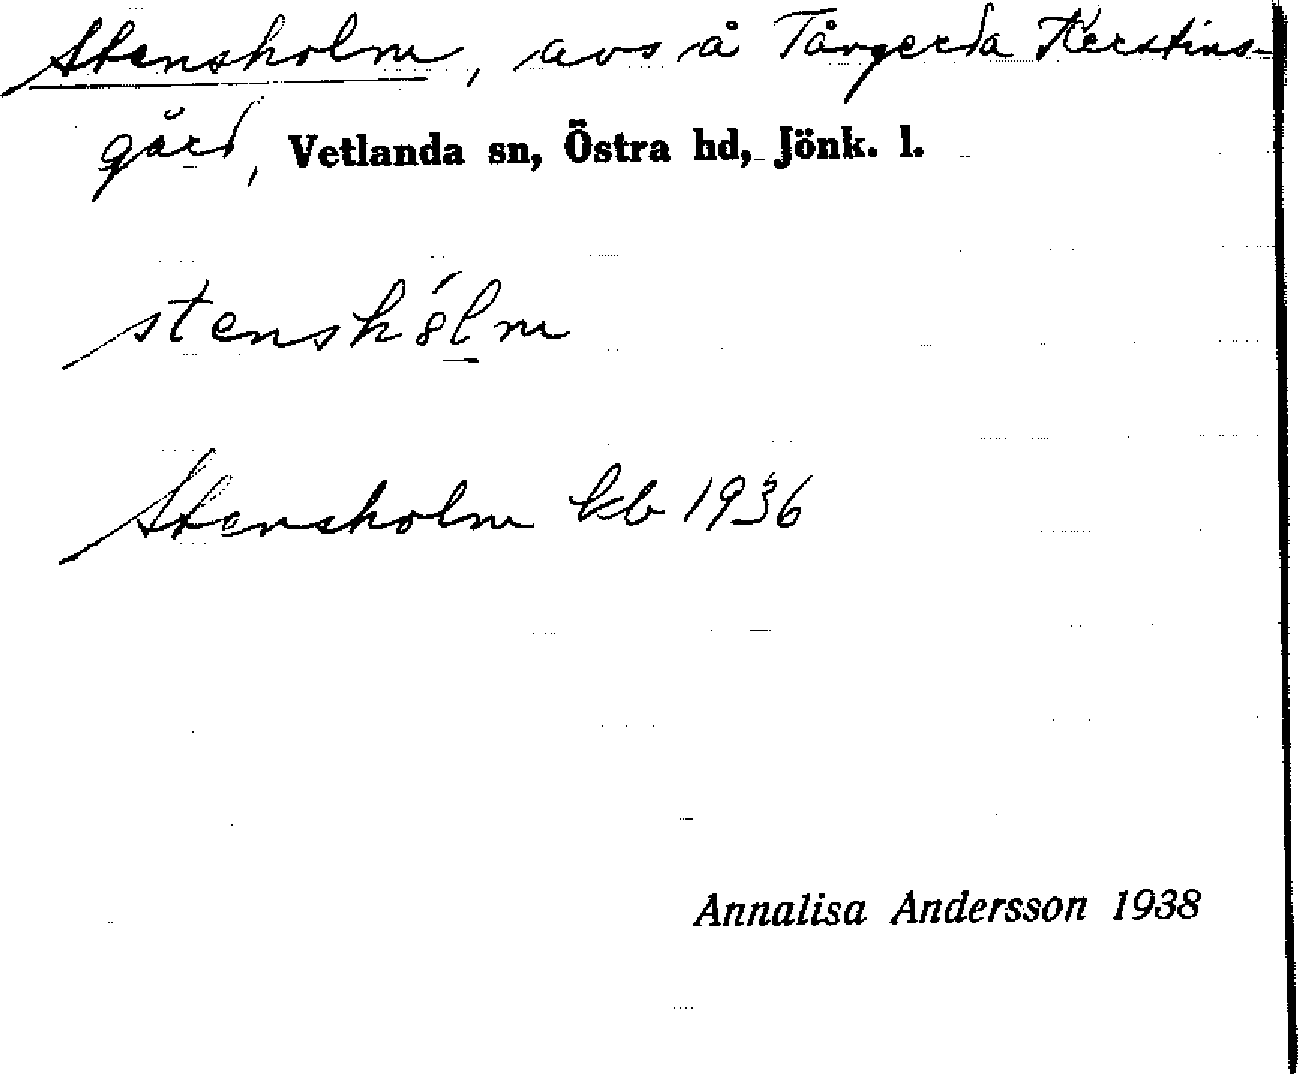 Stensholm, avs å Tångerda Kerstins-
gård, Vetlanda sn, Östra hd, Jönk. l.
stenshólm
Stensholm kb 1936
Annalisa Andersson 1938